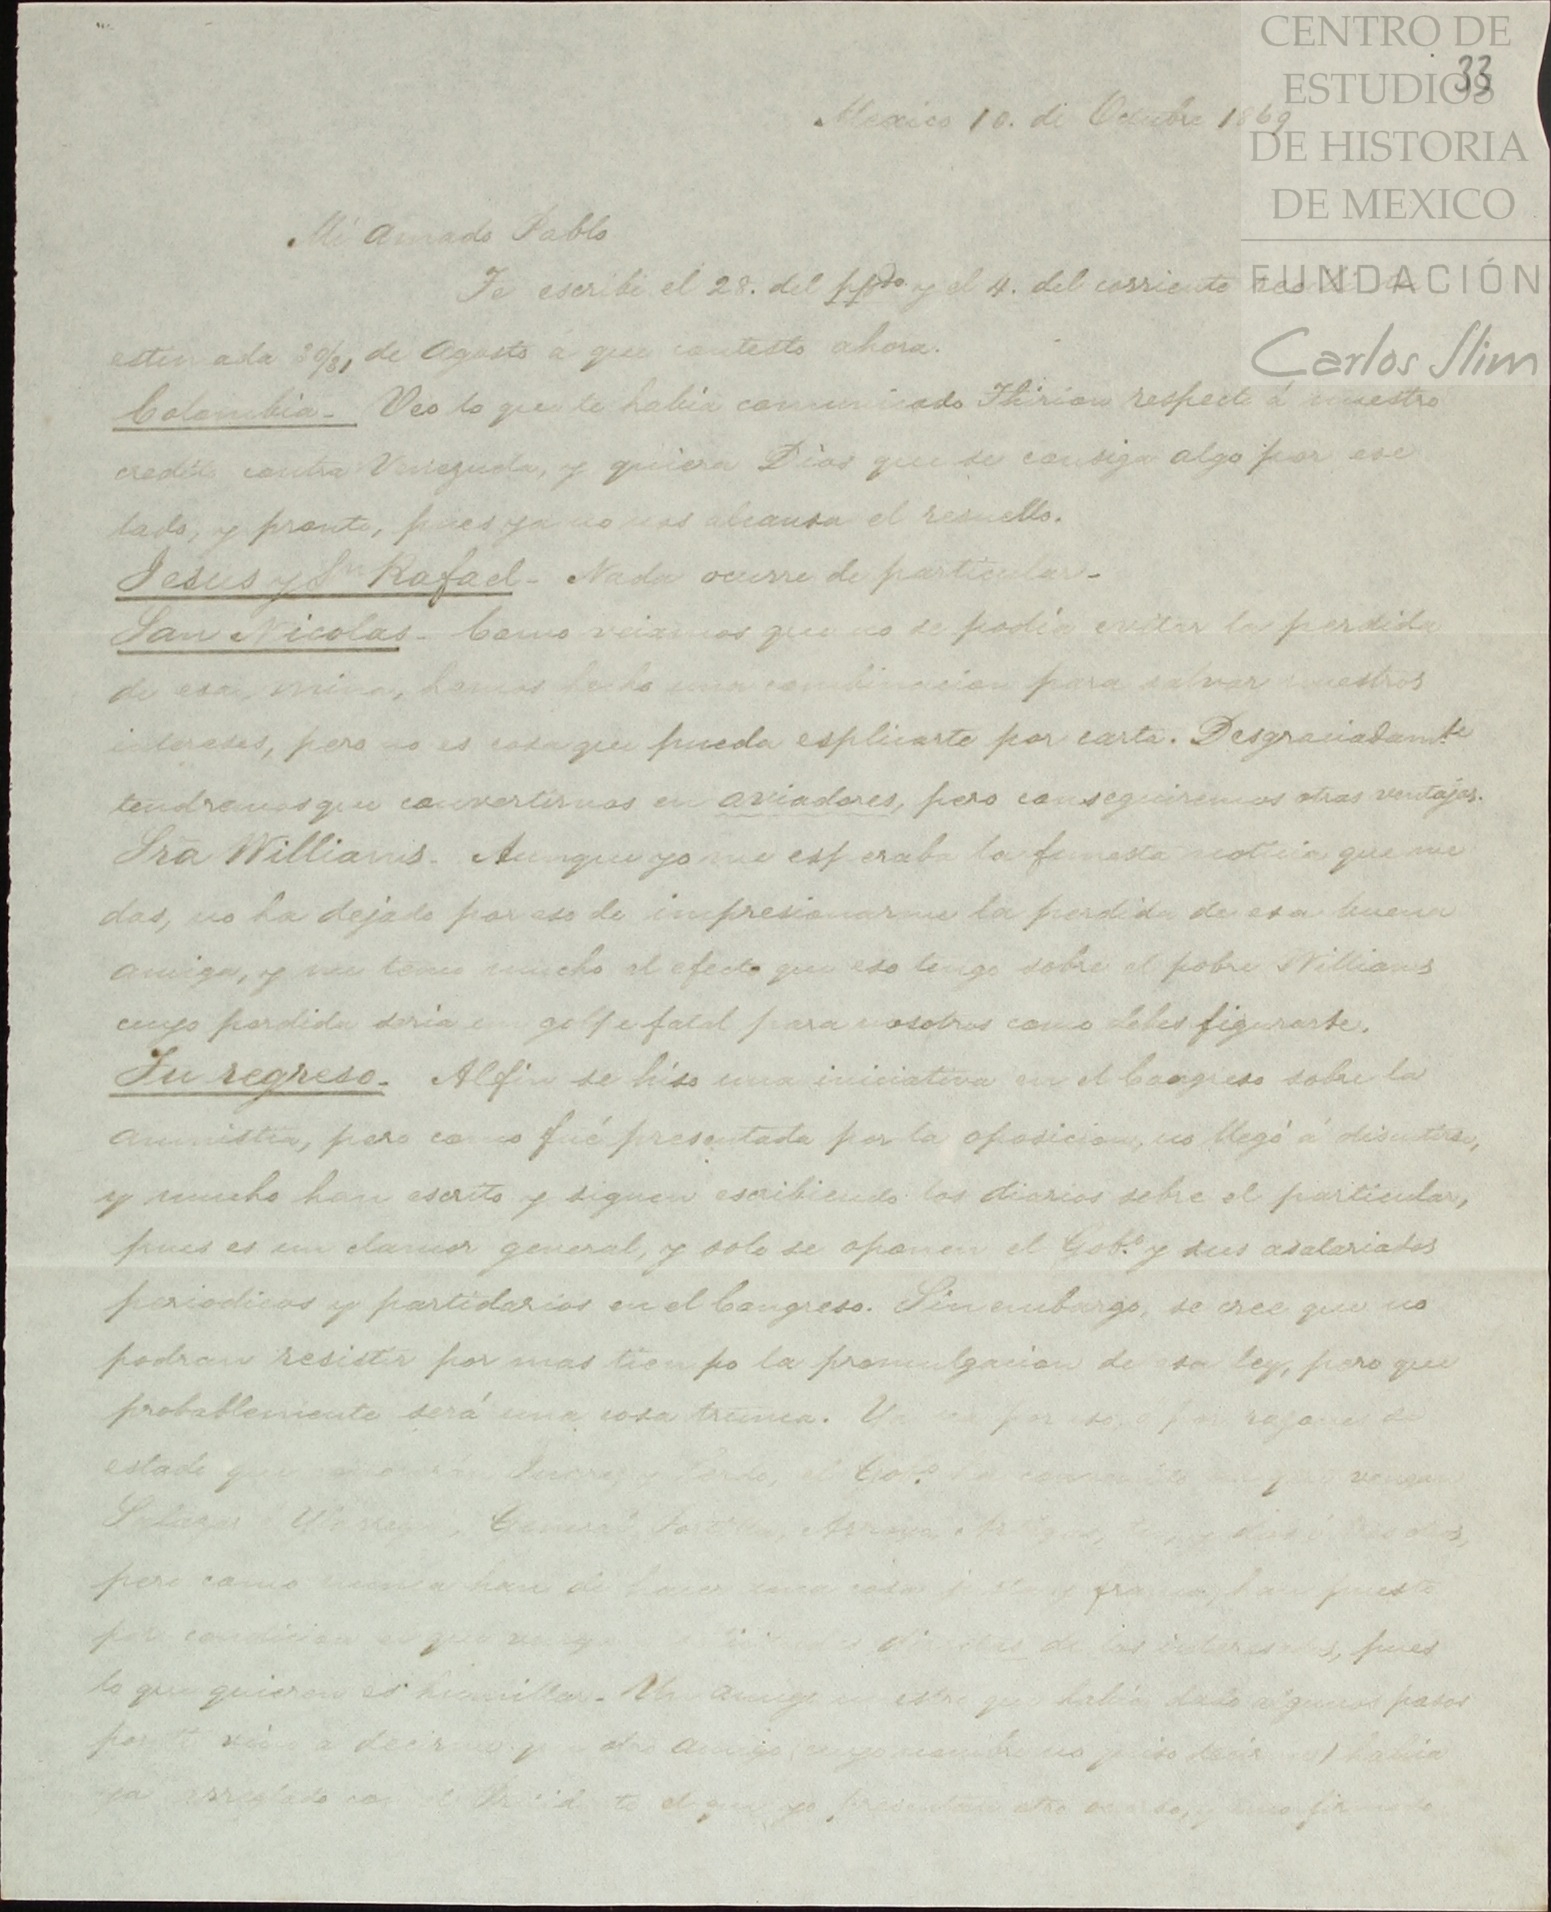 CENTRO DE
ESTUDIOS
DE HISTORIA
DE MEXICO
FUNDACIÓN
Carlos Slim
33
Mexico 10. de Octubre 1869
Mi amado Pablo
Te escribi el 28. del ppdo y el 4. del corriente
estimada 30/31 de Agosto á que contesto ahora.
Colombia - Veo lo que te habia comunicado Thirion respecto á nuestro
credito contra Venezuela, y quiera Dios que se consiga algo por ese
lado, y pronto, pues ya no nos alcansa el resuello.
Jesus y Sn Rafael - Nada ocurre de particular -
San Nicolas - Como veiamos que no se podia evitar la perdida
de esa mina, hemos hecho una combinacion para salvar nuestros
intereses, pero no es cosa que pueda esplicarte por carta. Desgraciadamte
tendremos que convertirnos en aviadores, pero conseguiremos otras ventajas.
Sra Willians - Aunque yo me esperaba la funesta noticia que me
das, no ha dejado por eso de impresionarme la perdida de esa buena
amiga, y me temo mucho el efecto que eso tenga sobre el pobre Willians
cuya perdida seria un golpe fatal para nosotros como debes figurarte.
Tu regreso - Al fin se hiso una iniciativa en el Congreso sobre la
amnistia, pero como fué presentada por la oposicion, no llegó á discutirse,
y mucho han escrito y siguen escribiendo los diarios sobre el particular,
pues es un clamor general, y solo se oponen el Gobo. y sus asalariados
periodicos y partidarios en el Congreso. Sin embargo, se cree que no
podran resistir por mas tiempo la promulgacion de esa ley, pero que
probablemente será una cosa trunca. Ya sea por eso, o por razones de
estado que Juarez y Lerdo, el Gobo. ha consentido en que vengan
General Arroyo, Artigas, y dos ó tres otros,
pero como nunca han de hacer una cosa justa y franca, han puesto
por condicion el que venga directas de los interesados, pues
lo que quieren es humillar - Un amigo nuestro que habia dado algunos pasos
por ti vino a decirme que otro amigo (cuyo nombre no quiso decirme) habia
ya arreglado con el Presidente el que yo presentara otro ocurso, y